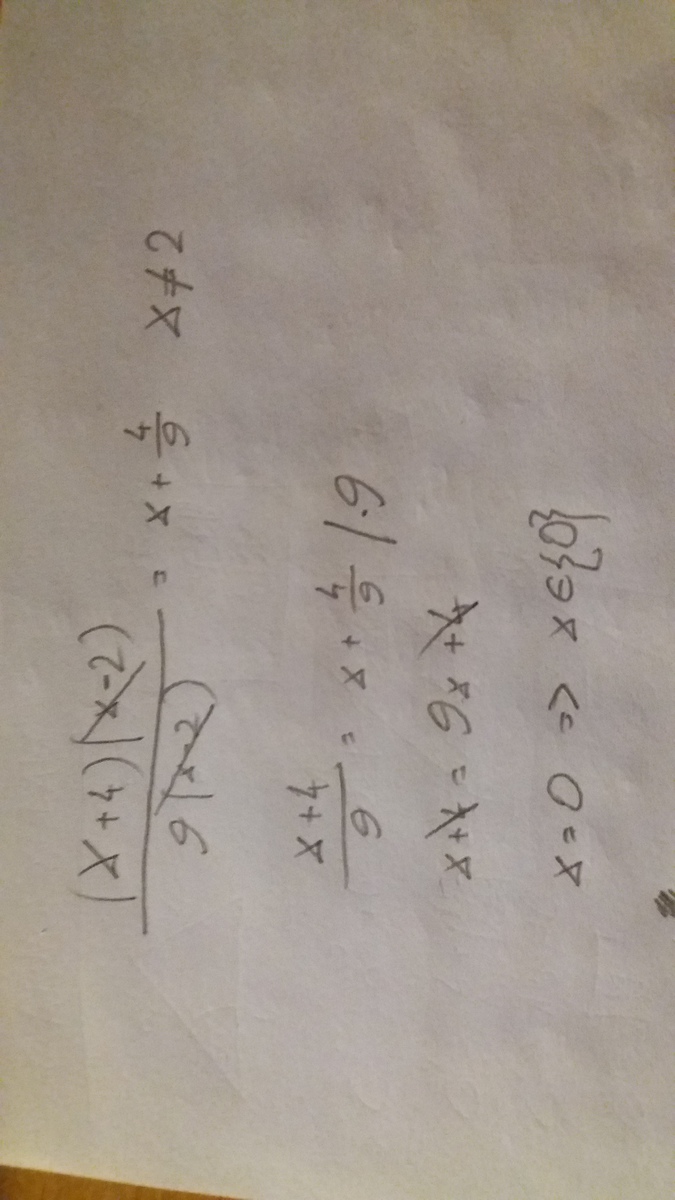 (x+4)(x-2)/9(x-2) = x + 4/9 x≠2
x+4/9 = x + 4/9 /·9
x+4 = 9x+4
x=0 => x∈{0}